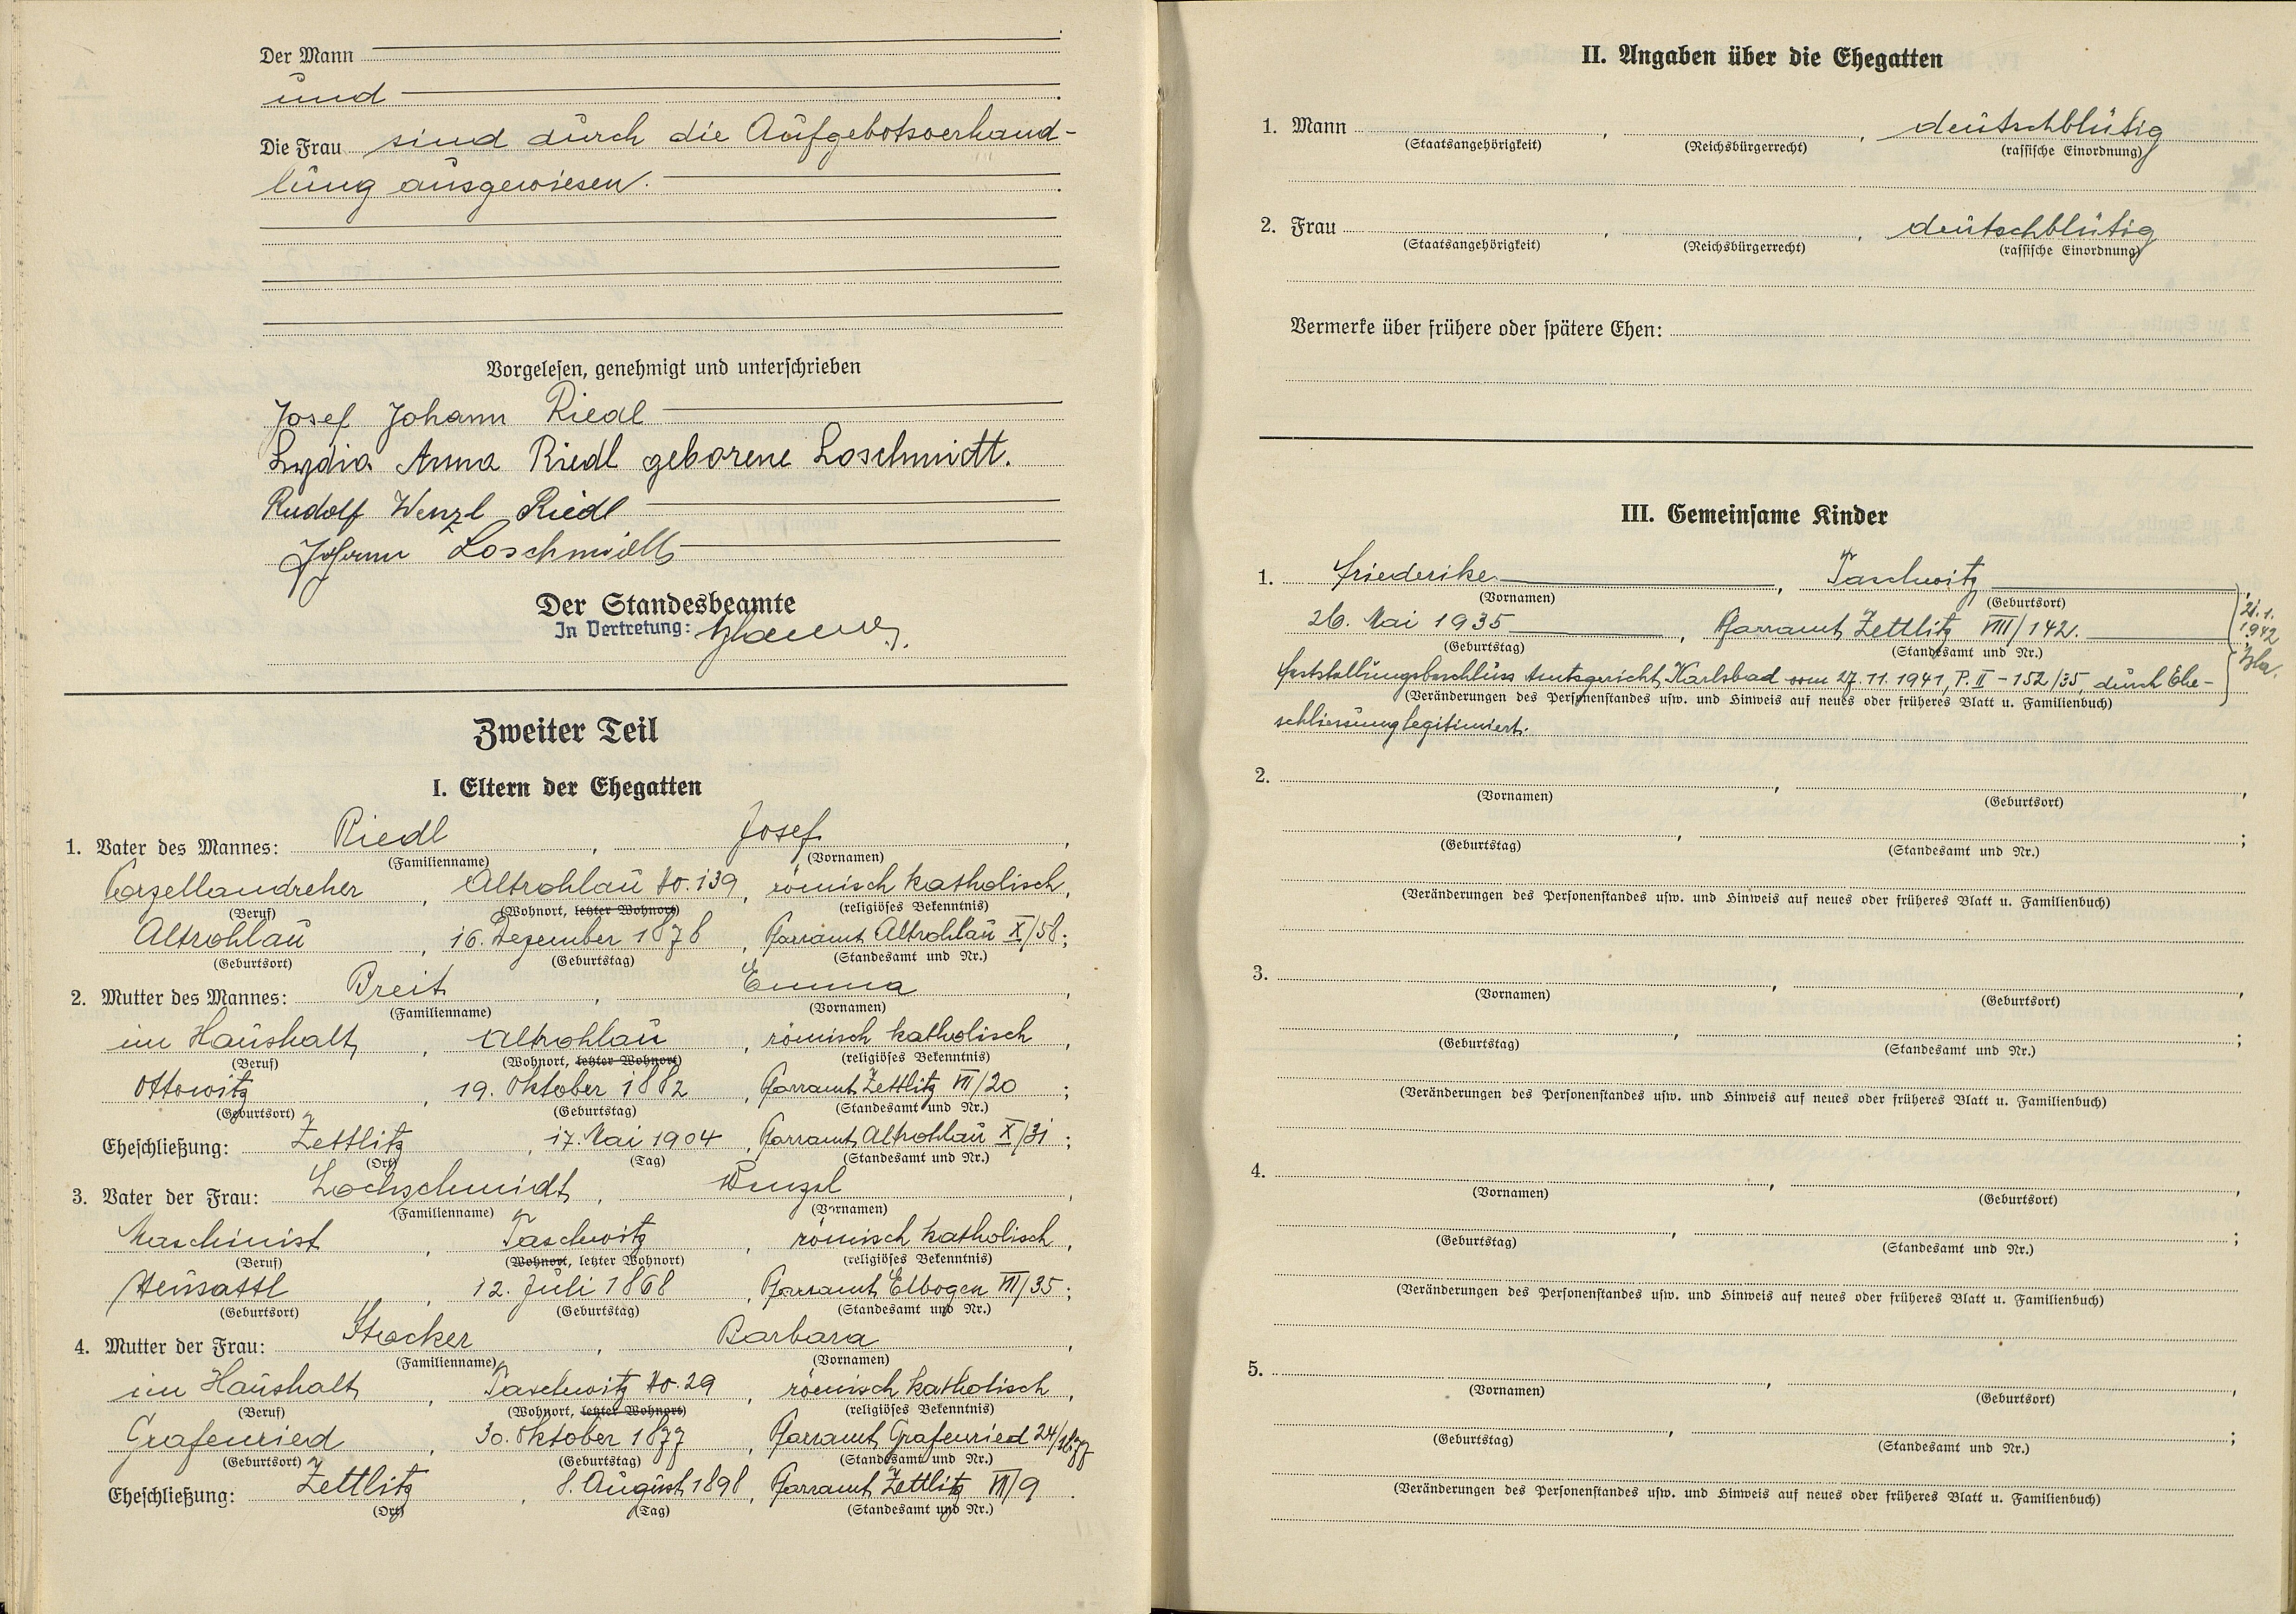 Der Mann
und
Die Frau sind durch die Aufgebotsverhand-
lung ausgewiesen.
Vorgelesen, genehmigt und unterschrieben
Josef Johann Riedl
Lydia Anna Riedl geborene Loschmidt.
Rudolf Wenzl Riedl
Johann Loschmidt
Der Standesbeamte
In Vertretung:
Zweiter Teil
I. Eltern der Ehegatten
1. Vater des Mannes: Riedl, Josef,
(Familienname) (Vornamen)
Porzellandreher, Altrohlau No. 139, römisch katholisch,
(Beruf) (Wohnort, letzter Wohnort) (religiöses Bekenntnis)
Altrohlau, 16. Dezember 1878, Pfarramt Altrohlau X/58;
(Geburtsort) (Geburtstag) (Standesamt und Nr.)
2. Mutter des Mannes: Breit, Emma,
(Familienname) (Vornamen)
im Haushalt, Altrohlau, römisch katholisch,
(Beruf) (Wohnort, letzter Wohnort) (religiöses Bekenntnis)
Ottowitz, 19. Oktober 1882, Pfarramt Zettlitz VII/20;
(Geburtsort) (Geburtstag) (Standesamt und Nr.)
Eheschließung: Zettlitz, 17. Mai 1904, Pfarramt Altrohlau X/31;
(Ort) (Tag) (Standesamt und Nr.)
3. Vater der Frau: Lochschmidt, Wenzel,
(Familienname) (Vornamen)
Maschinist, Taschwitz, römisch katholisch,
(Beruf) (Wohnort, letzter Wohnort) (religiöses Bekenntnis)
Neusattl, 12. Juli 1868, Pfarramt Elbogen VII/35;
(Geburtsort) (Geburtstag) (Standesamt und Nr.)
4. Mutter der Frau: Stocker, Barbara,
(Familienname) (Vornamen)
im Haushalt, Taschwitz No. 29, römisch katholisch,
(Beruf) (Wohnort, letzter Wohnort) (religiöses Bekenntnis)
Grafenried, 30. Oktober 1877, Pfarramt Grafenried 24/1877
(Geburtsort) (Geburtstag) (Standesamt und Nr.)
Eheschließung: Zettlitz, 8. August 1898, Pfarramt Zettlitz VII/9.
(Ort) (Tag) (Standesamt und Nr.)
II. Angaben über die Ehegatten
1. Mann , , deutschblütig
(Staatsangehörigkeit) (Reichsbürgerrecht) (rassische Einordnung)
2. Frau , , deutschblütig
(Staatsangehörigkeit) (Reichsbürgerrecht) (rassische Einordnung)
Vermerke über frühere oder spätere Ehen:
III. Gemeinsame Kinder
1. Friederike, Taschwitz,
(Vornamen) (Geburtsort)
26. Mai 1935, Pfarramt Zettlitz VIII/142. 21.1.1942
(Geburtstag) (Standesamt und Nr.)
Feststellungsbeschluss Amtsgericht Karlsbad vom 27.11.1941, P. II - 152/35, durch Ehe-
(Veränderungen des Personenstandes usw. und Hinweis auf neues oder früheres Blatt u. Familienbuch)
schliessung legitimiert.
2. , ,
(Vornamen) (Geburtsort)
, ;
(Geburtstag) (Standesamt und Nr.)
(Veränderungen des Personenstandes usw. und Hinweis auf neues oder früheres Blatt u. Familienbuch)
3. , ,
(Vornamen) (Geburtsort)
, ;
(Geburtstag) (Standesamt und Nr.)
(Veränderungen des Personenstandes usw. und Hinweis auf neues oder früheres Blatt u. Familienbuch)
4. , ,
(Vornamen) (Geburtsort)
, ;
(Geburtstag) (Standesamt und Nr.)
(Veränderungen des Personenstandes usw. und Hinweis auf neues oder früheres Blatt u. Familienbuch)
5. , ,
(Vornamen) (Geburtsort)
, ;
(Geburtstag) (Standesamt und Nr.)
(Veränderungen des Personenstandes usw. und Hinweis auf neues oder früheres Blatt u. Familienbuch)